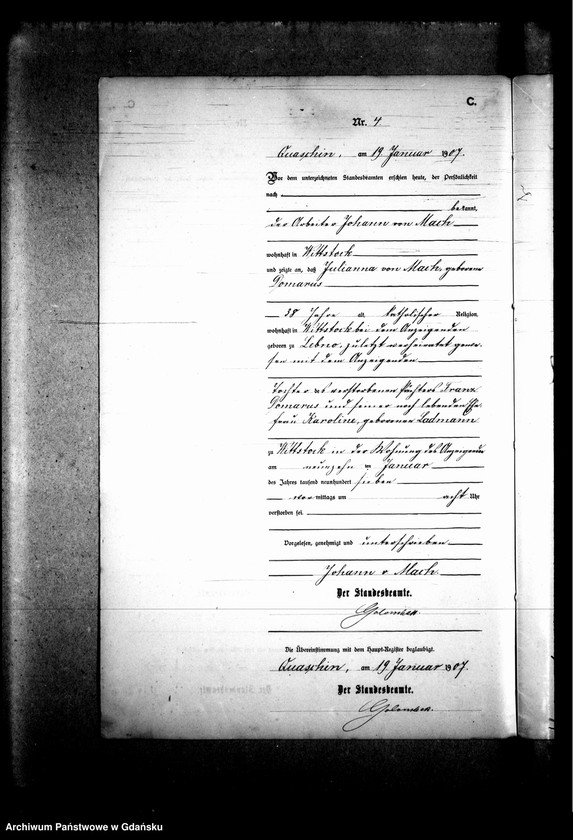 C.
Nr. 4
Quaschin, am 19 Januar 1907.
Vor dem unterzeichneten Standesbeamten erschien heute, der Persönlichkeit
nach
bekannt,
der Arbeiter Johann von Mach
wohnhaft in Wittstock
und zeigte an, daß Julianna von Mach, geborene
Pomarus
38 Jahre alt, katholischer Religion,
wohnhaft in Wittstock bei dem Anzeigenden
geboren zu Lebno, zuletzt verheiratet gewe-
sen mit dem Anzeigenden
Tochter des verstorbenen Pächters Franz
Pomarus und seiner noch lebenden Ehe-
frau Karoline, geborenen Ladmann
zu Wittstock in der Wohnung des Anzeigenden
am neunzehn ten Januar
des Jahres tausend neunhundert sieben
vor mittags um acht Uhr
verstorben sei.
Vorgelesen, genehmigt und unterschrieben
Johann v Mach
Der Standesbeamte.
Golombek
Die Übereinstimmung mit dem Haupt-Register beglaubigt.
Quaschin, am 19 Januar 1907.
Der Standesbeamte.
Golombek
Archiwum Państwowe w Gdańsku